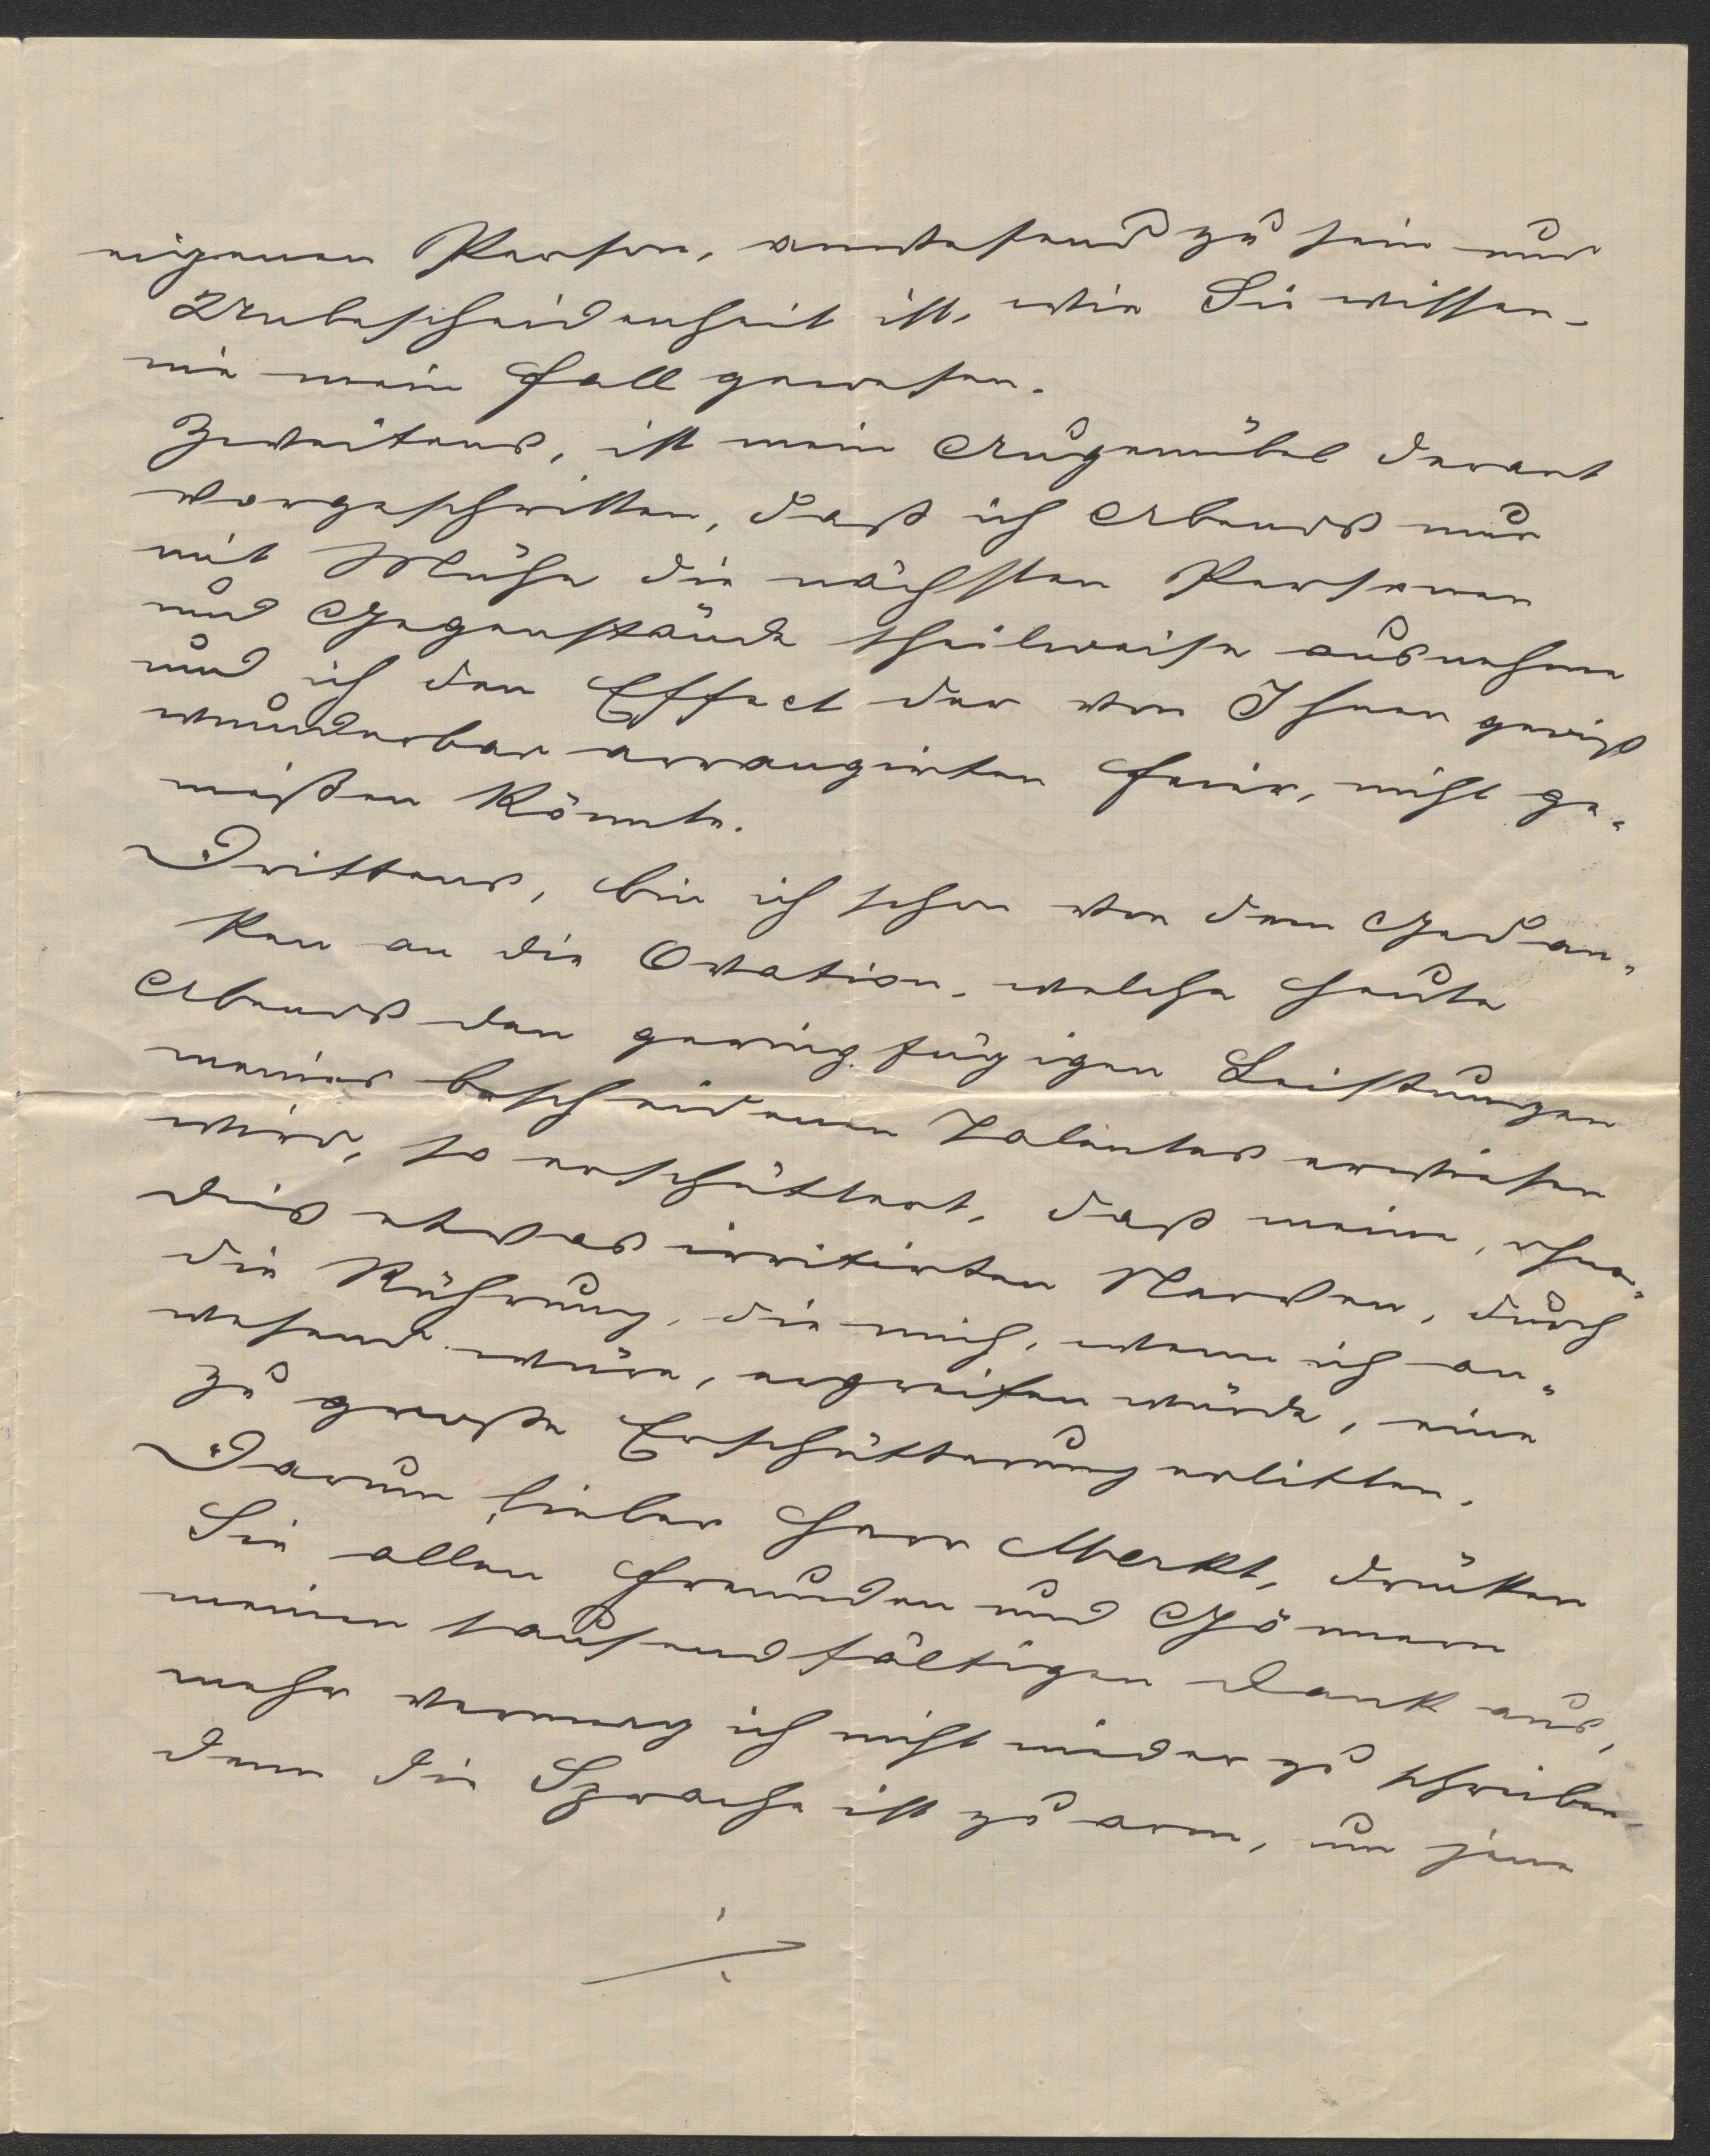 eigenen Person, anwesend zu sein und
Unbescheidenheit ist, wie Sie wissen,
nie mein Fall gewesen.
Zweitens, ist mein Augenübel derart
vorgeschritten, daß ich Abends nur
mit Mühe die nächsten Personen
und Gegenstände theilweise ausnehme
und ich den Effect der von Ihnen gewiß
wunderbar arrangirten Feier, nicht ge-
nießen könnte.
Drittens, bin ich schon von dem Gedan-
ken an die Ovation, welche heute
Abends den geringfügigen Leistungen
meines bescheidenen Talentes erwiesen
wird, so erschüttert, daß meine, ohne-
dies etwas irritirten Nerven, durch
die Rührung, die mich, wenn ich an-
wesend wäre, ergreifen würde, eine
zu große Erschütterung erlitten.
Darum, lieber Herr Merkt, drücken
Sie allen Freunden und Gönnern
meinen tausendfältigen Dank aus,
mehr vermag ich nicht nieder zu schreiben,
denn die Sprache ist zu arm, um jene
./.